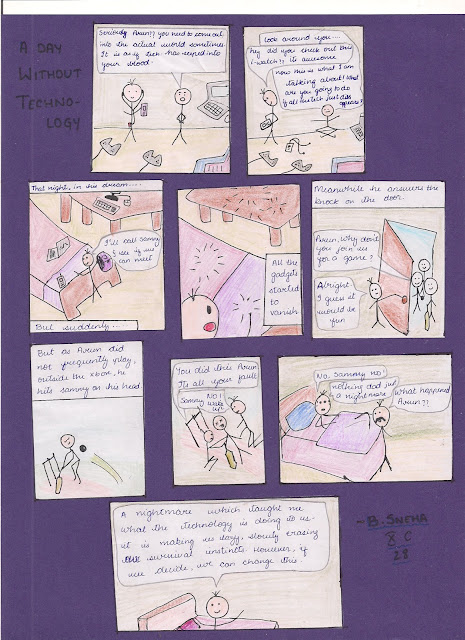 A DAY
WITHOUT
TECHNO-
LOGY
Seriously Arun?? you need to come out
into the actual world sometimes.
It is as if tech has seeped into
your blood.
look around you....
hey did you check out this
i-watch?? its awesome
now this is what I am
talking about! What
are you going to do
if all our tech just diss
appears?
That night, in his dream....
I'll call Sammy
& see if we
can meet
But suddenly....
All the
gadgets
started
to
vanish
Meanwhile he answers the
knock on the door.
Arun, Why don't
you join us
for a game?
Alright
I guess it
would be
fun
But as Arun did
not frequently play,
outside the xbox, he
hits sammy on his head.
You did this Arun
Its all your fault
Sammy NO!
Wake
up!
No, Sammy no!
nothing dad just
a nightmare
What happened
Arun?!
A nightmare which taught me
what the technology is doing to us.
it is making us lazy, slowly erasing
our survival instincts. However, if
we decide, we can change this.
~ B. SNEHA
8 C
28